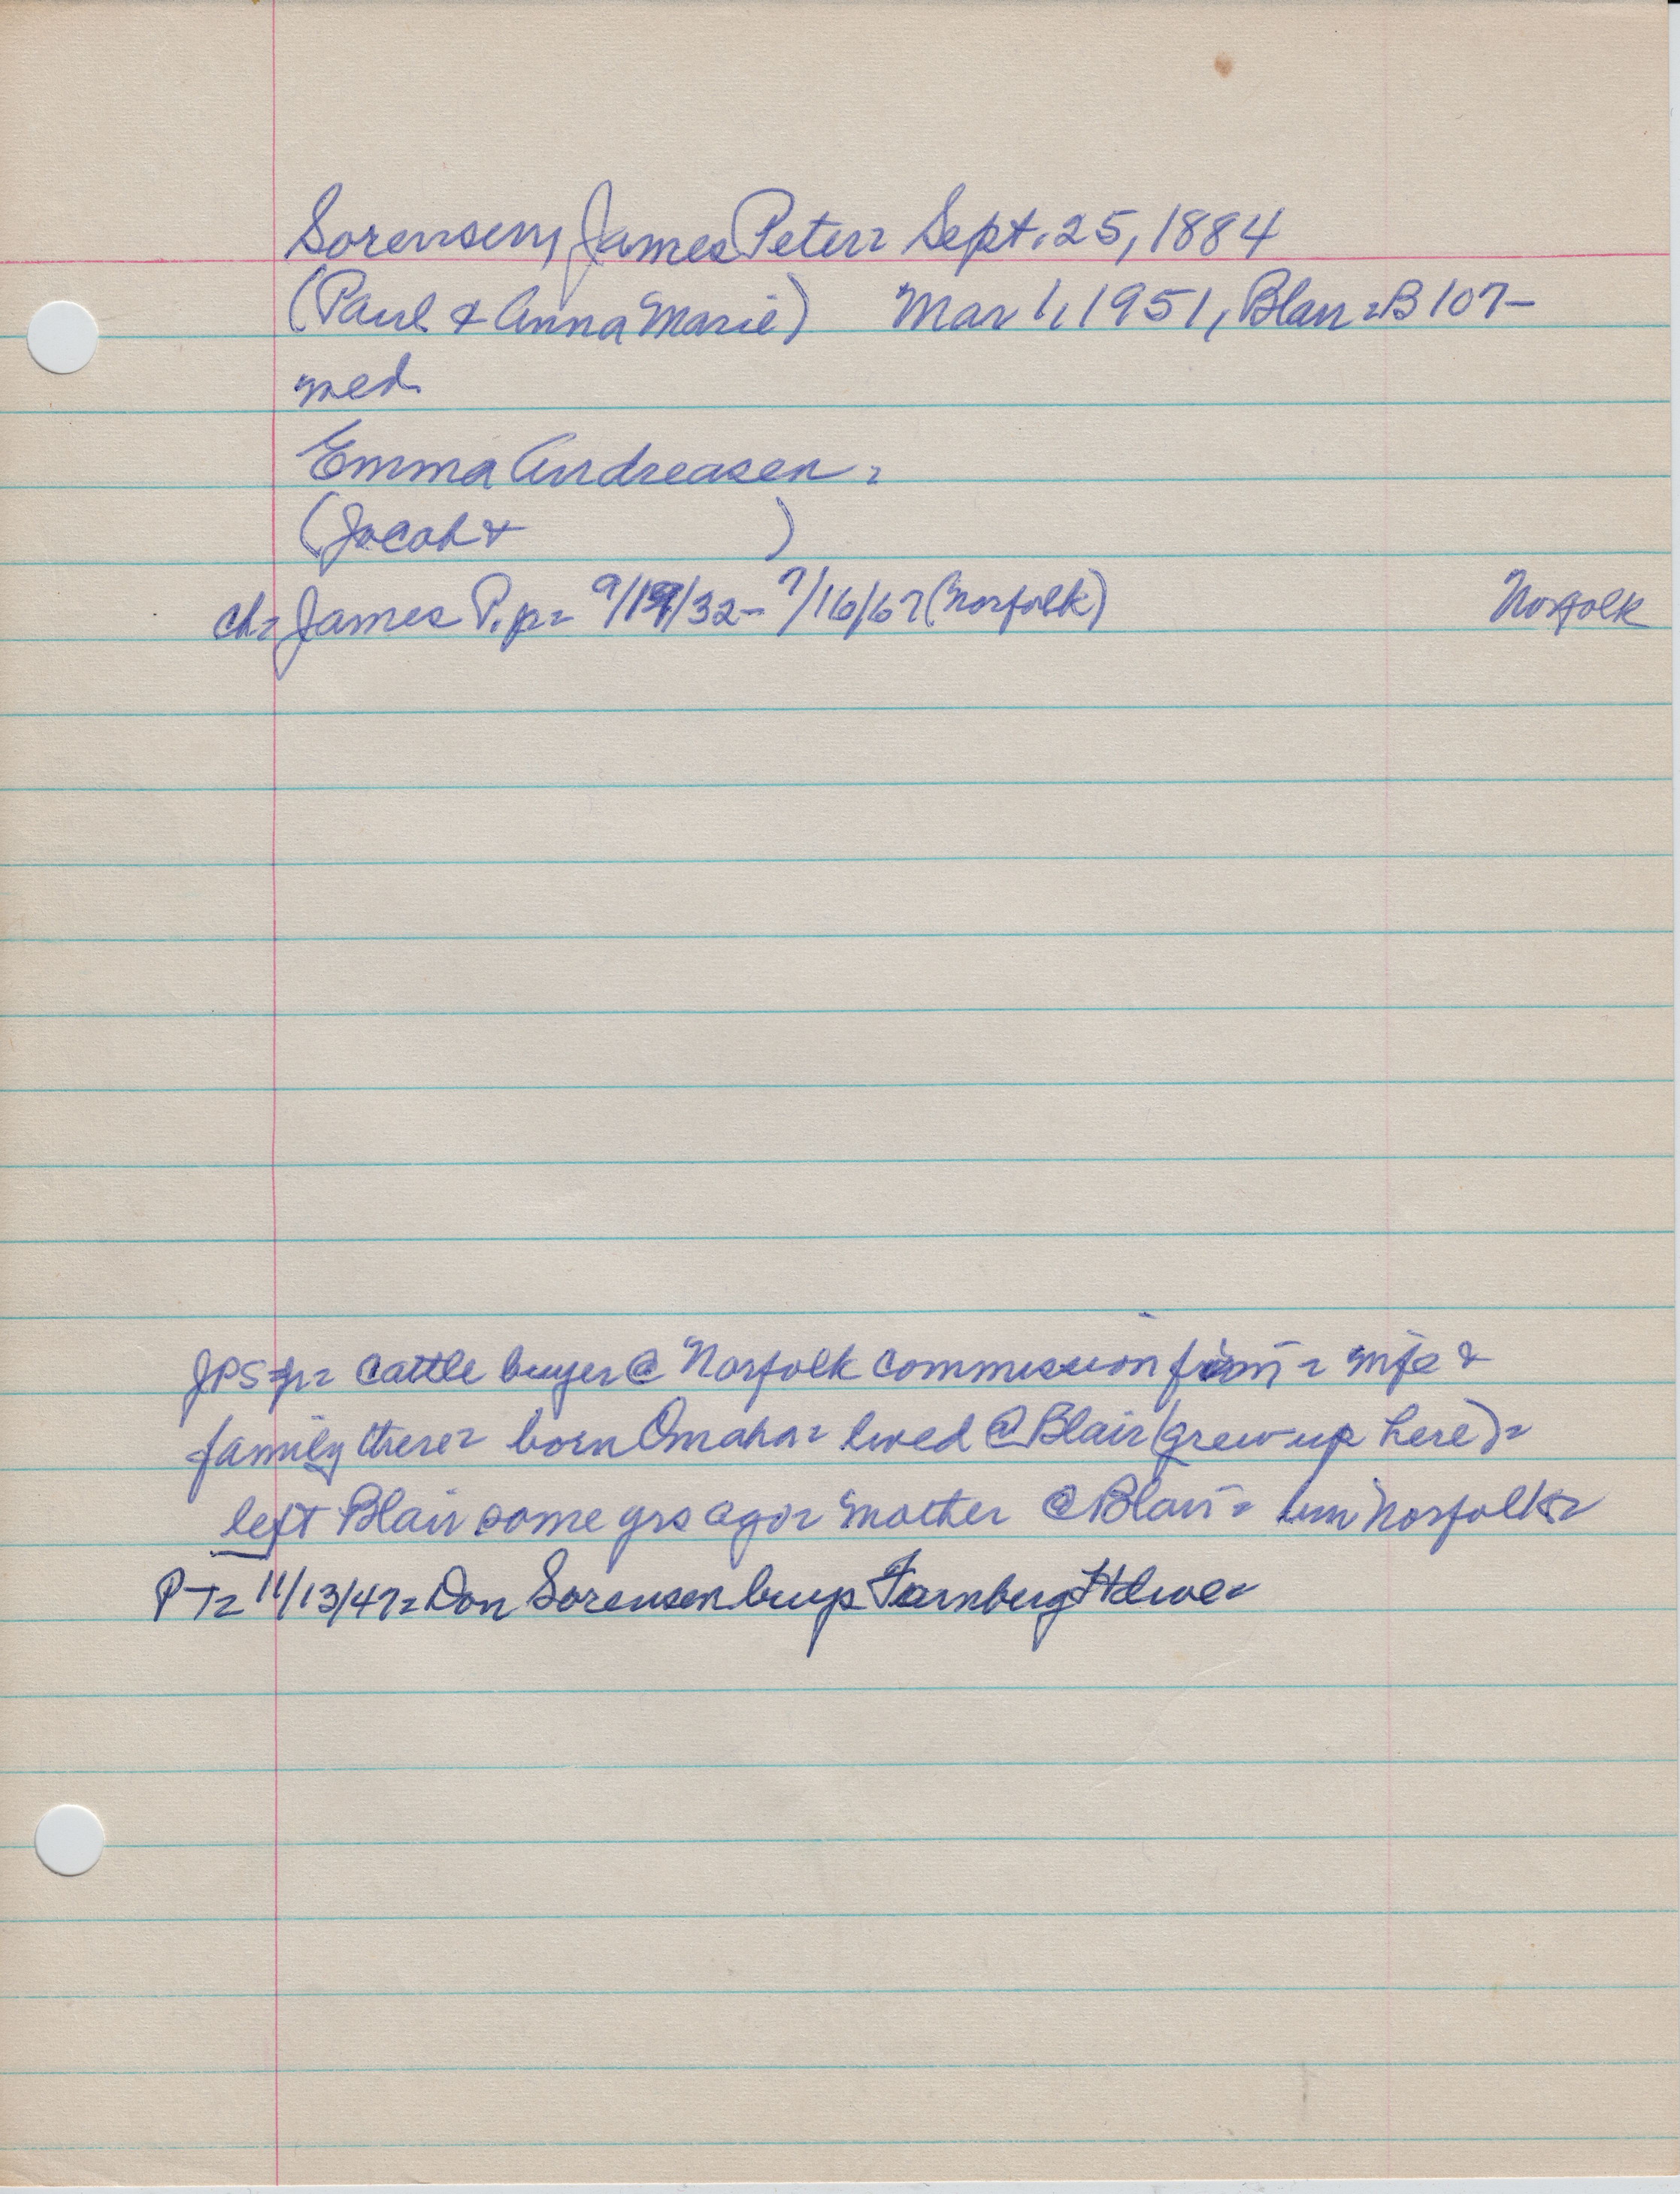 Sorensen, James Peter= Sept. 25, 1884
(Paul & Anna Marie) Mar 1, 1951, Blair=B107-
med
Emma Andreasen=
(Jacob & )
ch= James P. jr= 9/19/32- 7/16/67 (Norfolk) Norfolk
JPS jr= cattle buyer @ Norfolk commission firm= wife &
family there= born Omaha= lived @ Blair (grew up here)=
left Blair some yrs ago= mother @ Blair= Norfolk=
PT= 11/13/47= Don Sorensen buys Farnberg Hdwe=